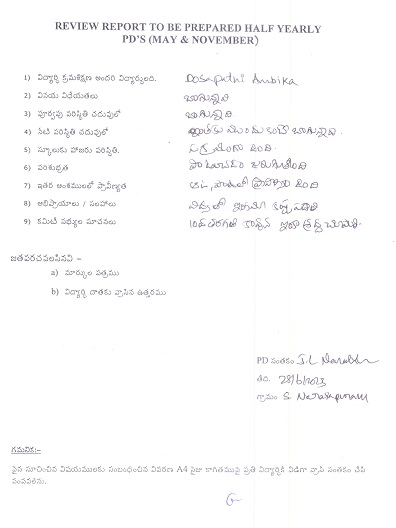 REVIEW REPORT TO BE PREPARED HALF YEARLY
PD'S (MAY & NOVEMBER)
1) విద్యార్థి క్రమశిక్షణ అందరి విద్యార్థులది. Dosaputhi Ambika
2) వినయ విధేయతలు బాగున్నాది
3) పూర్వపు పరిస్థితి చదువులో బాగున్నాది
4) నేటి పరిస్థితి చదువులో ఇంతకు ముందు కంటే బాగున్నాది.
5) స్కూలుకు హాజరు పరిస్థితి. సక్రమంగా ఉంది.
6) పరిశుభ్రత పాటించడం జరుగుతోంది
7) ఇతర అంశములలో ప్రావీణ్యత ఆట, పాటలలో ప్రావీణ్యం ఉంది
8) అభిప్రాయాలు / సలహాలు
9) కమిటీ సభ్యుల సూచనలు 10వ తరగతి
జతపరచవలసినవి –
a) మార్కుల పత్రము
b) విద్యార్థి దాతకు వ్రాసిన ఉత్తరము
PD సంతకం
తేది. 28/6/2023
గ్రామం S. Narasapuram
గమనిక:-
పైన సూచించిన విషయములకు సంబంధించిన వివరణ A4 సైజు కాగితముపై ప్రతి విద్యార్థికి విడిగా వ్రాసి సంతకం చేసి
పంపవలెను.